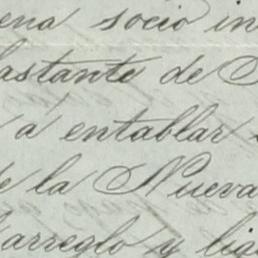 ena socio in
astante de
á entablar
e la Nueva
arreglo y liq